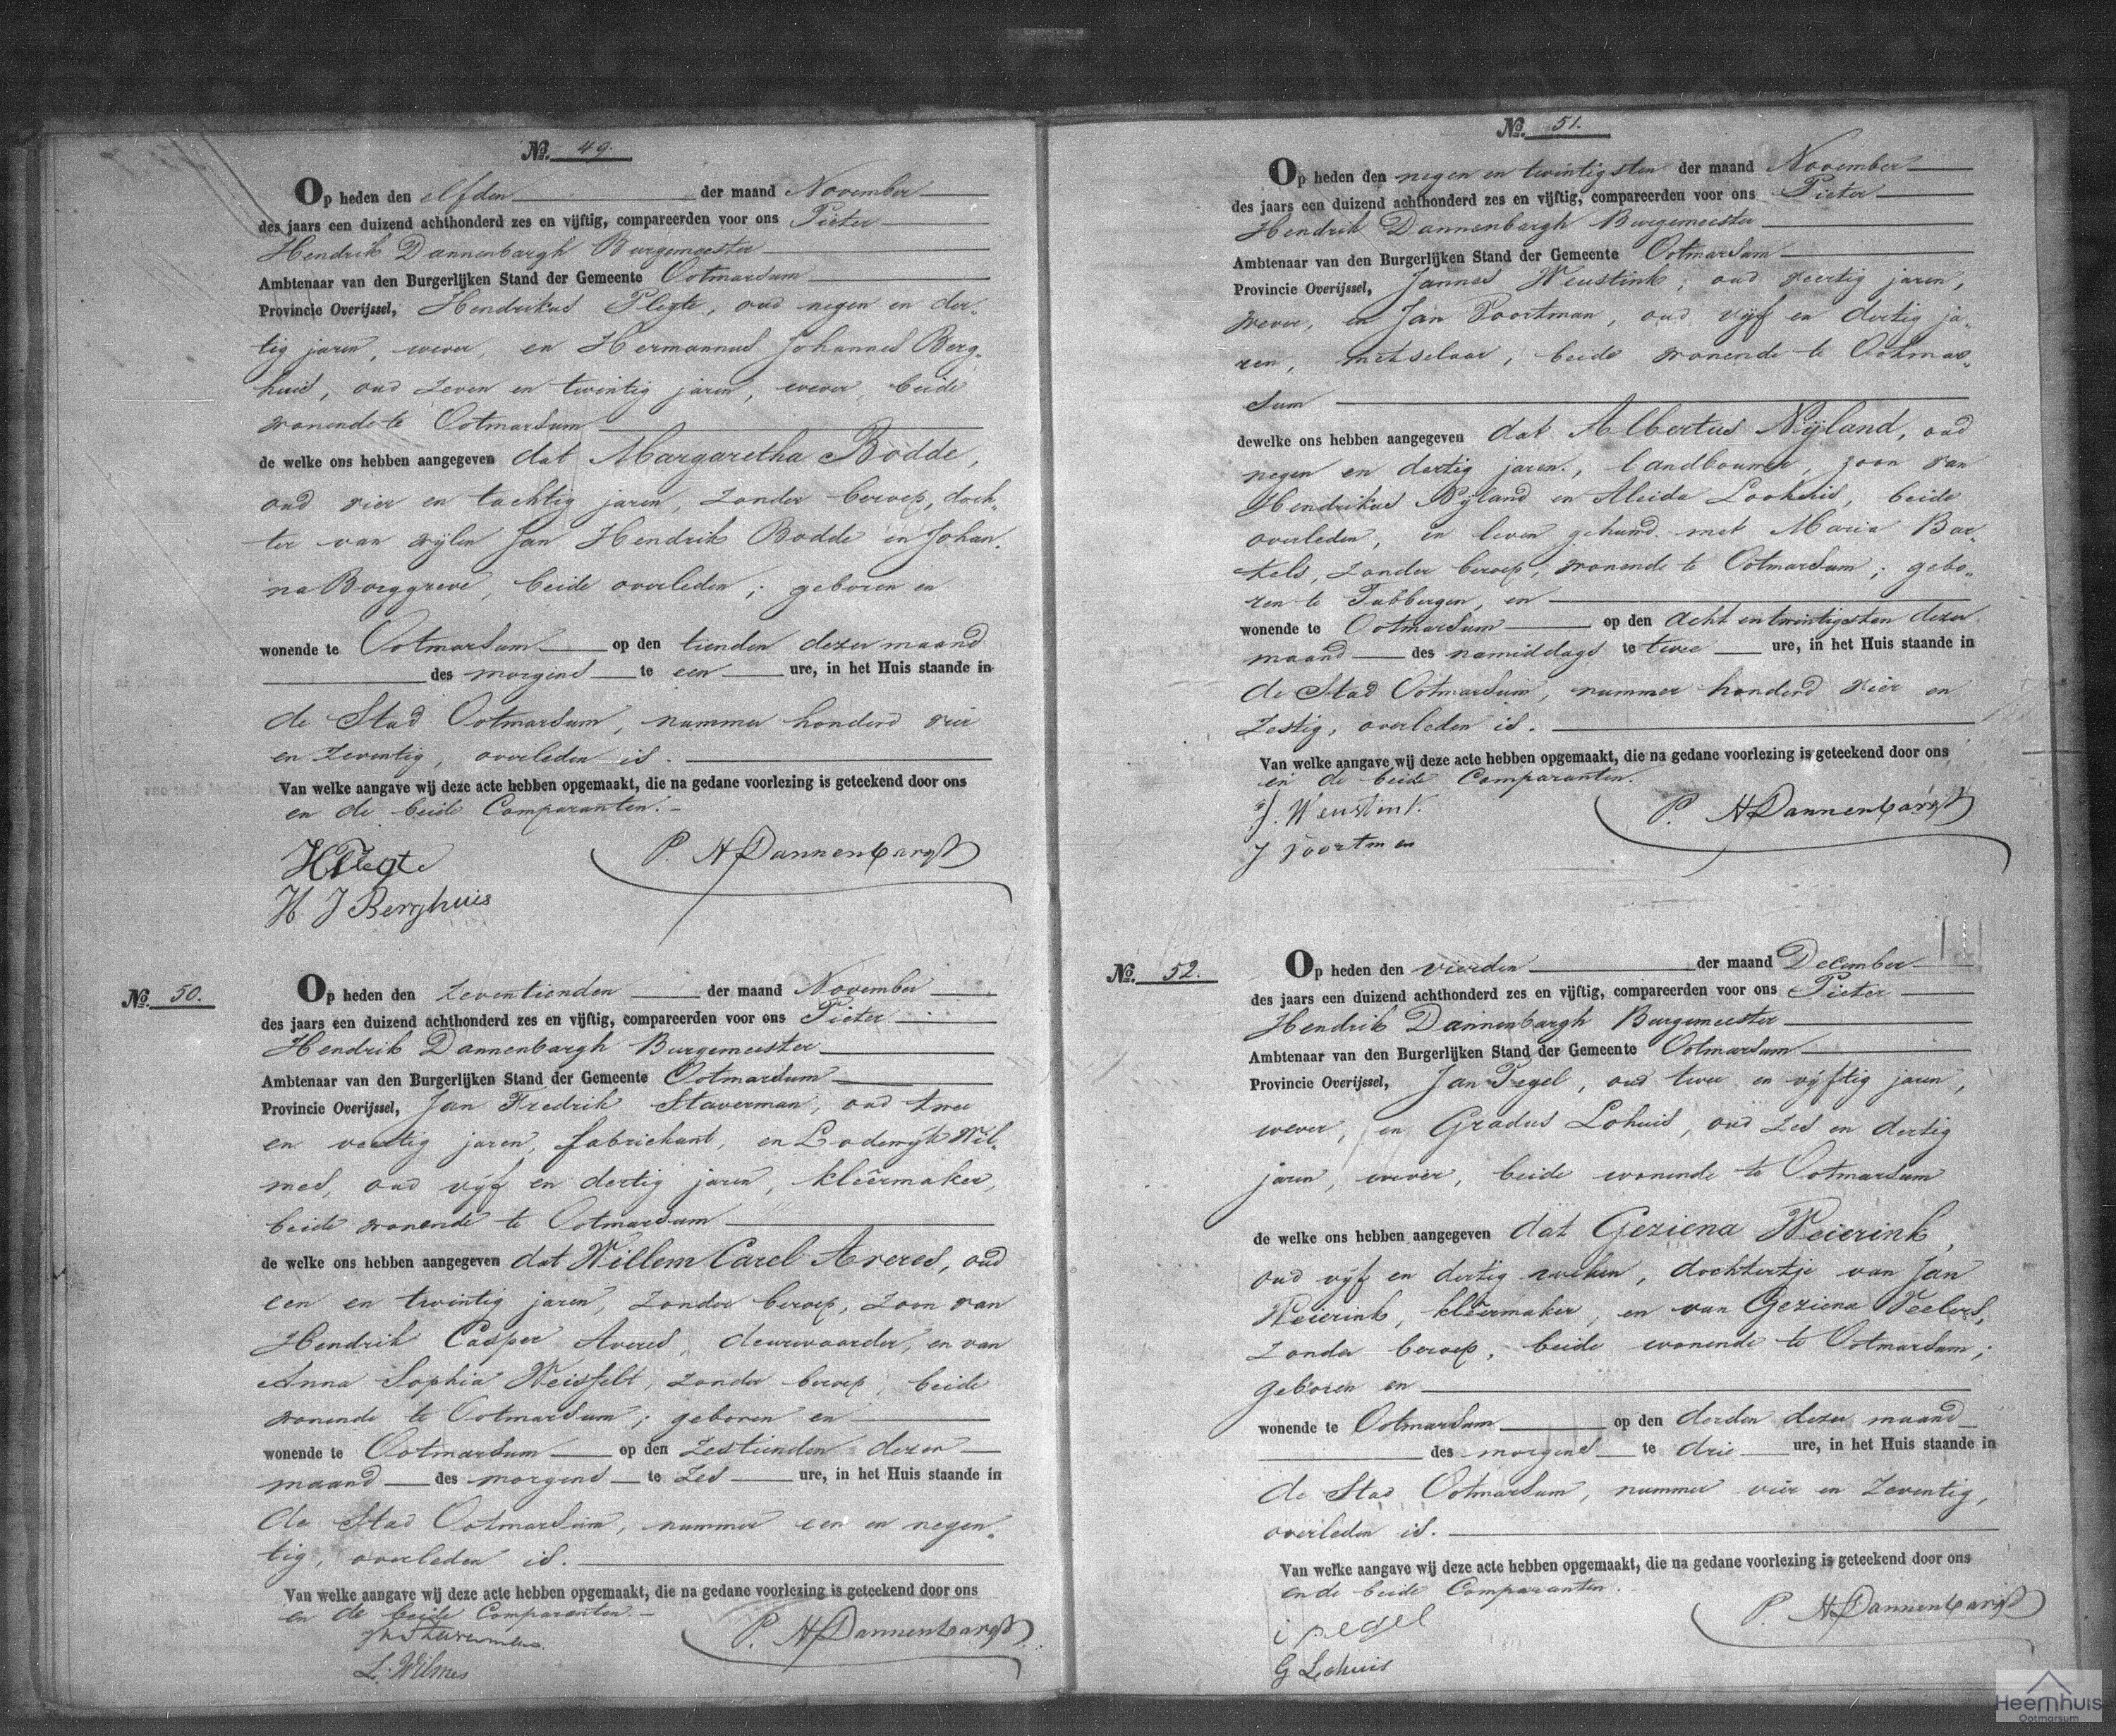 No. 49.
Op heden den elfden der maand November
des jaars een duizend achthonderd zes en vijftig, compareerden voor ons Pieter
Hendrik Dannenbargh Burgemeester
Ambtenaar van den Burgerlijken Stand der Gemeente Ootmarsum
Provincie Overijssel, Hendrikus Plegte, oud negen en der-
tig jaren, wever, en Hermannus Johannes Berg-
huis, oud zeven en twintig jaren, wever, beide
wonende te Ootmarsum
de welke ons hebben aangegeven dat Margaretha Bodde,
oud vier en tachtig jaren, zonder beroep, doch-
ter van wijlen Jan Hendrik Bodde en Johan-
na Borggreve, beide overleden; geboren en
wonende te Ootmarsum op den tienden dezer maand
des morgens te een ure, in het Huis staande in
de Stad Ootmarsum, nummer honderd vier
en zeventig, overleden is.
Van welke aangave wij deze acte hebben opgemaakt, die na gedane voorlezing is geteekend door ons
en de beide Comparanten.
H Plegte
P. H Dannenbargh
H. J Berghuis
No. 50.
Op heden den zeventienden der maand November
des jaars een duizend achthonderd zes en vijftig, compareerden voor ons Pieter
Hendrik Dannenbargh Burgemeester
Ambtenaar van den Burgerlijken Stand der Gemeente Ootmarsum
Provincie Overijssel, Jan Fredrik Staverman, oud twee
en veertig jaren, fabriekant, en Lodewijk Wil-
mes, oud vijf en dertig jaren, kleermaker,
beide wonende te Ootmarsum
de welke ons hebben aangegeven dat Willem Carel Averes, oud
een en twintig jaren, zonder beroep, zoon van
Hendrik Casper Averes, deurwaarder, en van
Anna Sophia Weisfelt, zonder beroep, beide
wonende te Ootmarsum; geboren en
wonende te Ootmarsum op den zestienden dezer
maand des morgens te zes ure, in het Huis staande in
de Stad Ootmarsum, nummer een en negen-
tig, overleden is.
Van welke aangave wij deze acte hebben opgemaakt, die na gedane voorlezing is geteekend door ons
en de beide Comparanten.
P. H Dannenbargh
L. Wilmes
No. 51.
Op heden den negen en twintigsten der maand November
des jaars een duizend achthonderd zes en vijftig, compareerden voor ons Pieter
Hendrik Dannenbargh Burgemeester
Ambtenaar van den Burgerlijken Stand der Gemeente Ootmarsum
Provincie Overijssel, Jannes Weustink, oud veertig jaren,
wever, en Jan Poortman, oud vijf en dertig ja-
ren, metselaar, beide wonende te Ootmar-
sum
dewelke ons hebben aangegeven dat Albertus Nijland, oud
negen en dertig jaren, landbouwer, zoon van
Hendrikus Nijland en Aleida Loohuis, beide
overleden, in leven gehuwd met Maria Bar-
tels, zonder beroep, wonende te Ootmarsum; gebo-
ren te Tubbergen, en
wonende te Ootmarsum op den acht en twintigsten dezer
maand des namiddags te twee ure, in het Huis staande in
de Stad Ootmarsum, nummer honderd vier en
zestig, overleden is.
Van welke aangave wij deze acte hebben opgemaakt, die na gedane voorlezing is geteekend door ons
en de beide Comparanten.
J. Weustink.
P. H Dannenbargh
J Poortman
No. 52.
Op heden den vierden der maand December
des jaars een duizend achthonderd zes en vijftig, compareerden voor ons Pieter
Hendrik Dannenbargh Burgemeester
Ambtenaar van den Burgerlijken Stand der Gemeente Ootmarsum
Provincie Overijssel, Jan Pegel, oud twee en vijftig jaren,
wever, en Gradus Lohuis, oud zes en dertig
jaren, wever, beide wonende te Ootmarsum
de welke ons hebben aangegeven dat Geziena Weierink,
oud vijf en dertig weken, dochtertje van Jan
Weierink, kleermaker, en van Geziena Veelers,
zonder beroep, beide wonende te Ootmarsum;
geboren en
wonende te Ootmarsum op den derden dezer maand
des morgens te drie ure, in het Huis staande in
de Stad Ootmarsum, nummer vier en zeventig,
overleden is.
Van welke aangave wij deze acte hebben opgemaakt, die na gedane voorlezing is geteekend door ons
en de beide Comparanten.
P. H Dannenbargh
i pegel
G Lohuis
Heemhuis
Ootmarsum